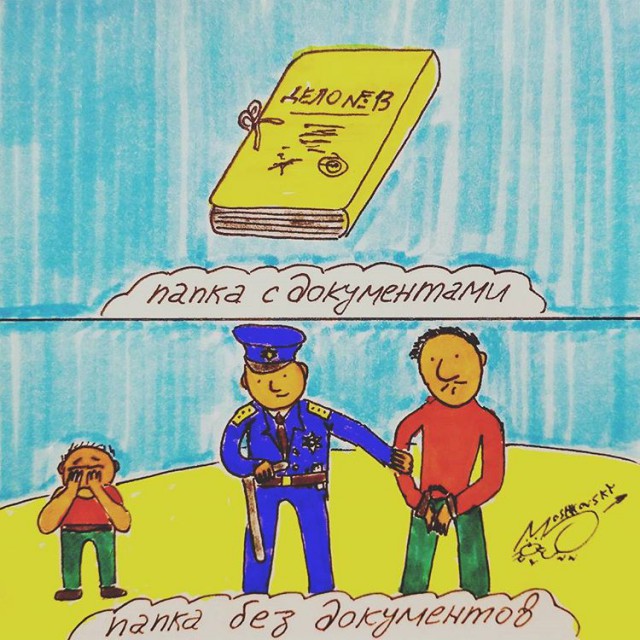 ДЕЛО № 13
папка с документами
папка без документов
Moskovski